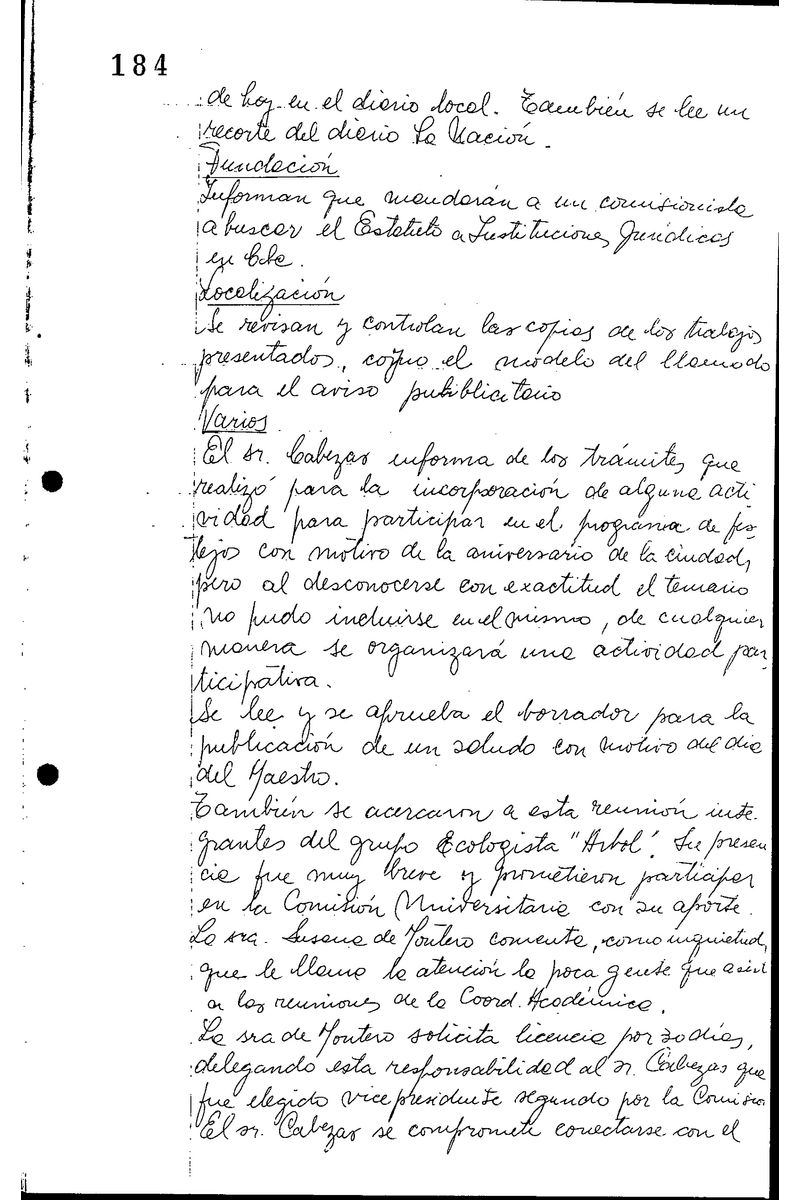 184
de hoy en el diario local. También se lee un
recorte del diario La Nación.
Fundación
Informan que mandarán a un comisionista
a buscar el Estatuto a Instituciones Jurídicas
en
Localización
Se revisan y controlan las copias de los trabajos
presentados, como el modelo del llamado
para el aviso publicitario
Varios
El sr. Cabezas informa de los trámites que
realizó para la incorporación de alguna acti
vidad para participar en el programa de fes-
tejos con motivo de la aniversario de la ciudad,
pero al desconocerse con exactitud el temario
no pudo incluirse en el mismo, de cualquier
manera se organizará una actividad par
ticipativa.
Se lee y se aprueba el borrador para la
publicación de un saludo con motivo del dia
del Maestro.
También se acercaron a esta reunión inte-
grantes del grupo Ecologista "Arbol". Su presen
cia fue muy breve y prometieron participar
en la Comisión Universitaria con su aporte.
La sra. Susana de Montero comenta, como inquietud,
que le llama la atención la poca gente que asist
a las reuniones de la Coord. Académica.
La sra de Montero solicita licencia por 30 días,
delegando esta responsabilidad al sr. Cabezas que
fue elegido vicepresidente segundo por la Comisión
El sr. Cabezas se compromete conectarse con el